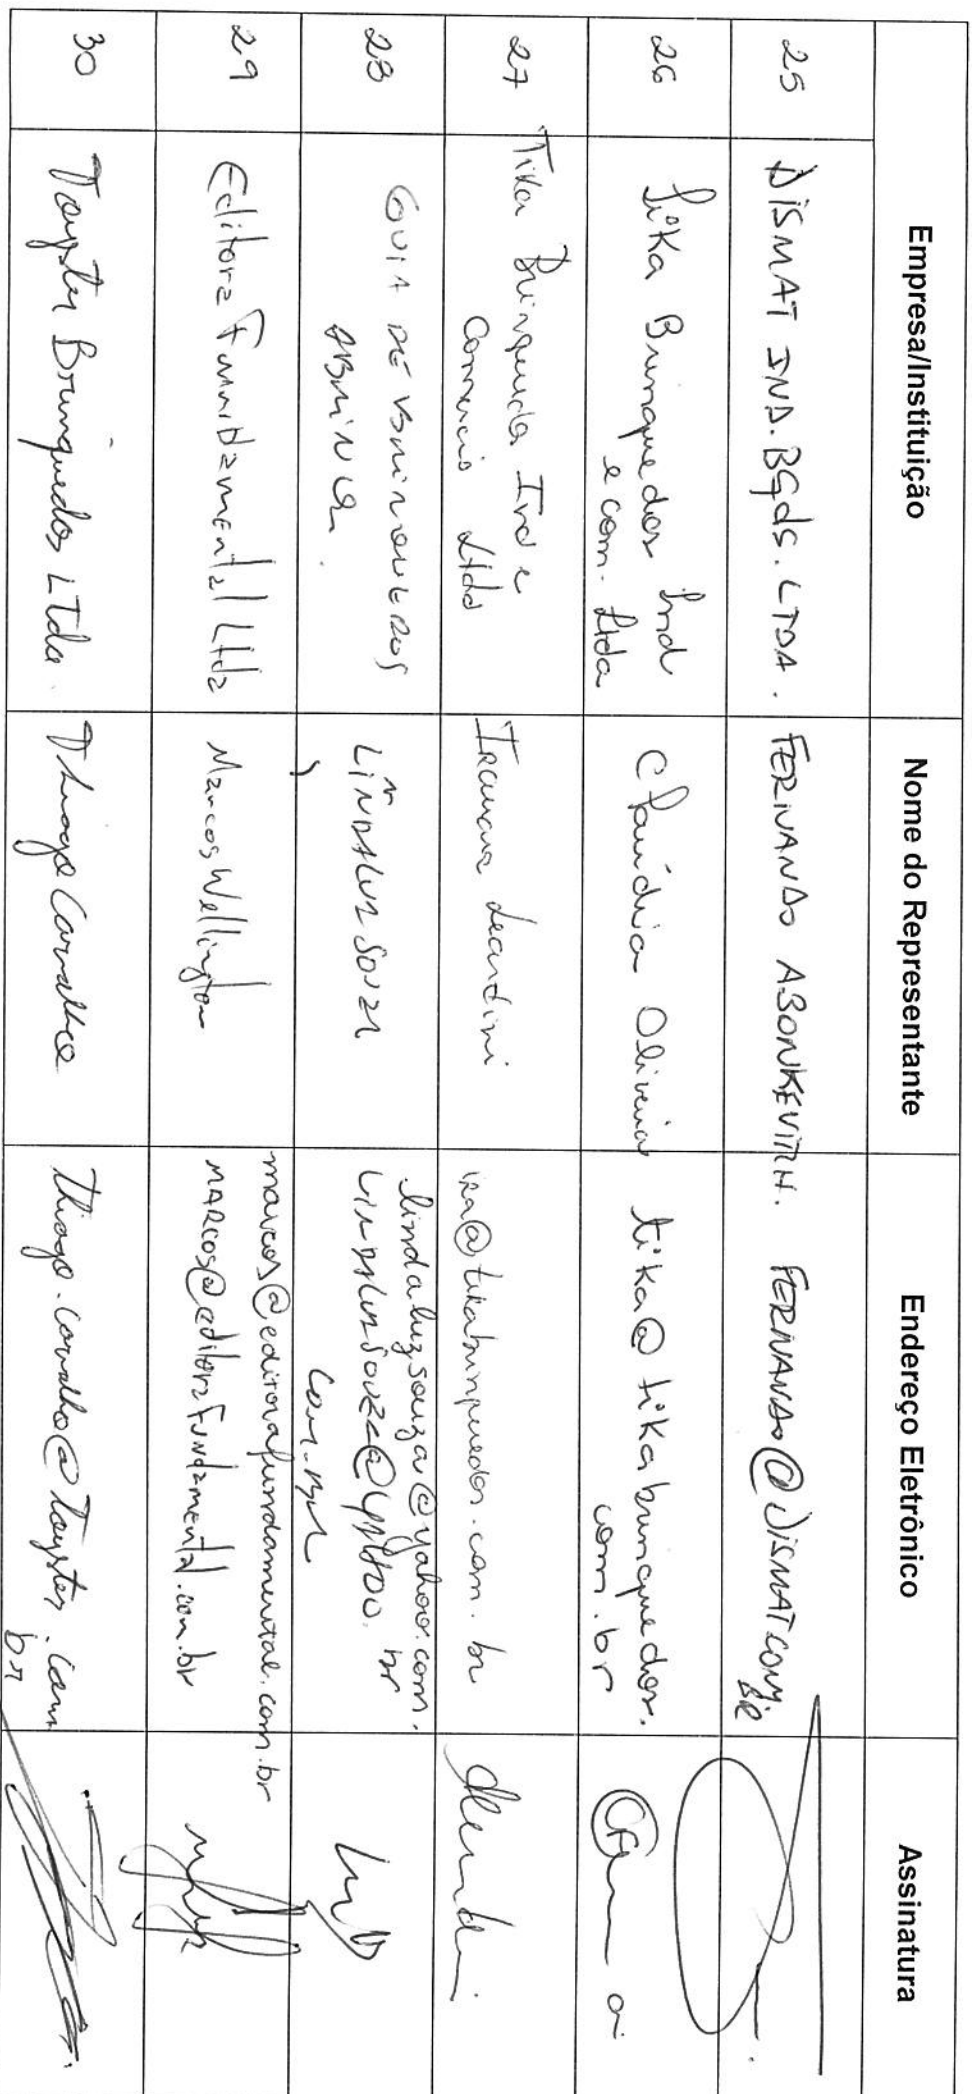 Empresa/Instituição Nome do Representante Endereço Eletrônico Assinatura
25 DISMAT IND. BQds. LTDA. FERNANDO ABONKEVITCH. FERNANDO@DISMAT.COM.
BR
26 Tika Brinquedos Ind
e com. Ltda
Claúdia Oliveira
tika@tikabrinquedos.
com.br
27 Tika Brinquedos Ind e
Comercio Ltda
Leardini
ira@tikabrinquedos.com.br
28 GUIA DE BRINQUEDOS
ABRINQ.
LINDALUZ SOUZA
lindaluzsouza@yahoo.com.
br
LINDALUZSOUZA@YAHOO.
COM.BR
29 Editora Fundamental Ltda
Marcos Wellington
marcos@editorafundamental.com.br
MARCOS@editoraFundamental.com.br
30 Toyster Brinquedos LTda.
Thiago Carvalho
thiago.carvalho@toyster.com
br